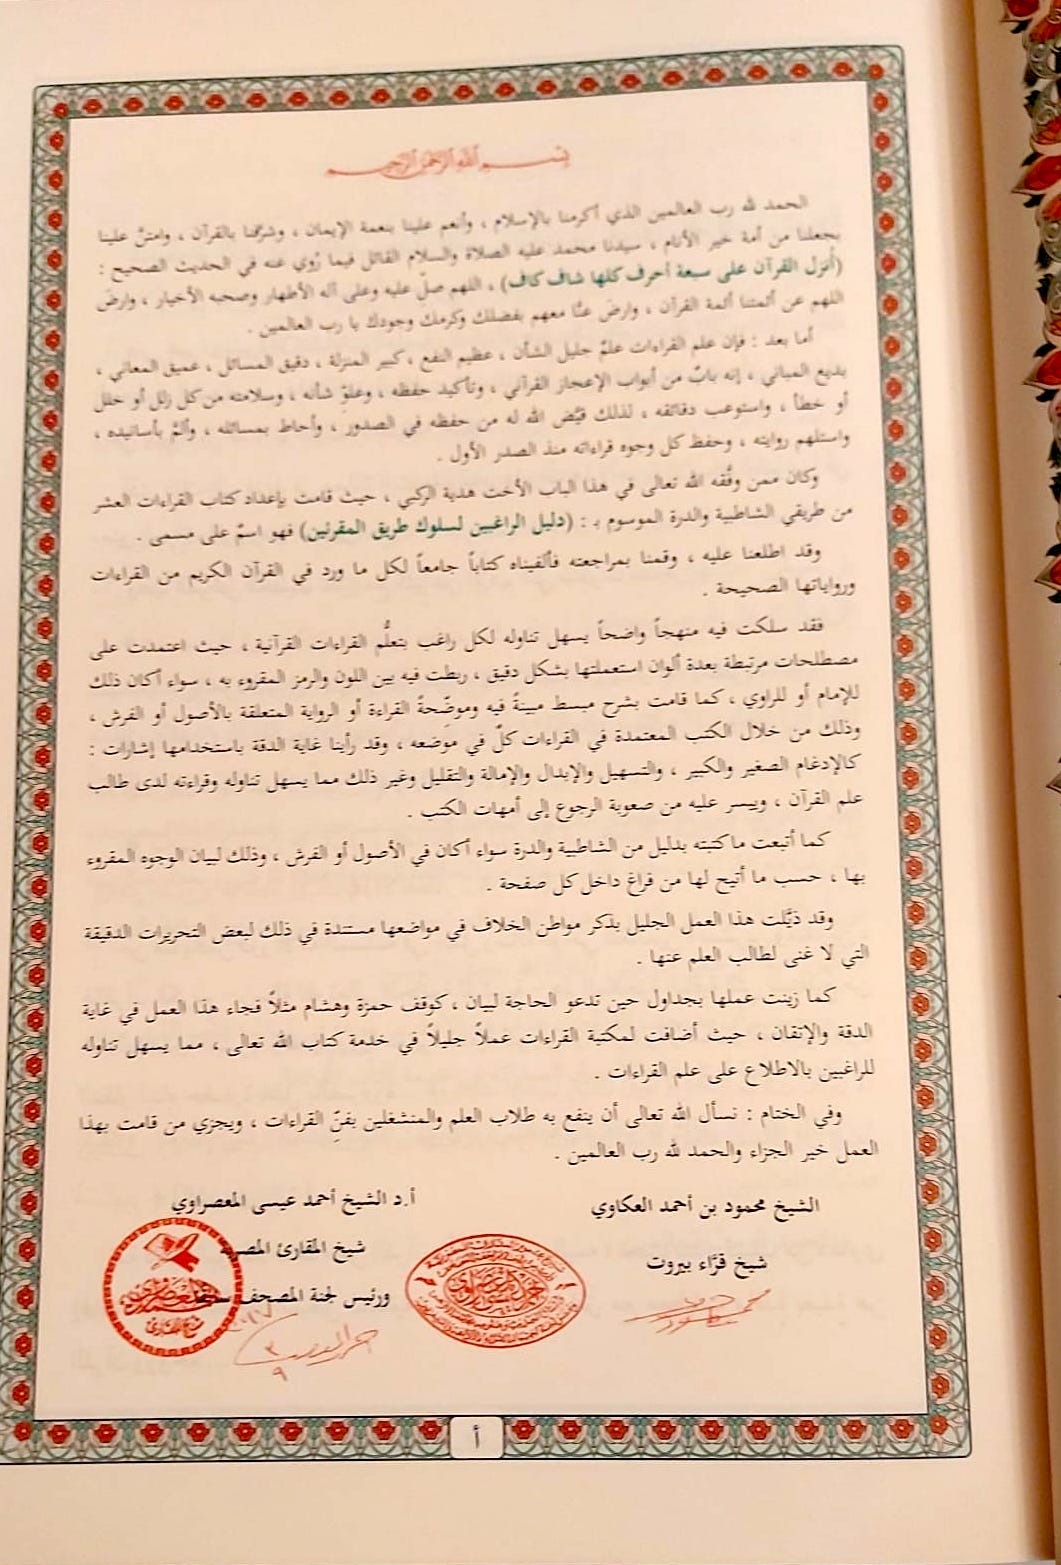 بسم الله الرحمن الرحيم
الحمد لله رب العالمين الذي أكرمنا بالإسلام ، وأنعم علينا بنعمة الإيمان ، وشرّفنا بالقرآن ، وامتنَّ علينا
بجعلنا من أمة خير الأنام ، سيدنا محمد عليه الصلاة والسلام القائل فيما رُوي عنه في الحديث الصحيح :
(أُنزل القرآن على سبعة أحرف كلها شاف كاف) ، اللهم صلّ عليه وعلى آله الأطهار وصحبه الأخيار ، وارضَ
اللهم عن أئمتنا أئمة القرآن ، وارضَ عنَّا معهم بفضلك وكرمك وجودك يا رب العالمين .
أما بعد : فإن علم القراءات علمٌ جليل الشأن ، عظيم النفع ، كبير المنزلة ، دقيق المسائل ، عميق المعاني ،
بديع المباني ، إنه بابٌ من أبواب الإعجاز القرآني ، وتأكيد حفظه ، وعلوِّ شأنه ، وسلامته من كل زلل أو خلل
أو خطأ ، واستوعب دقائقه ، لذلك قيَّض الله له من حفظه في الصدور ، وأحاط بمسائله ، وألمَّ بأسانيده ،
واستلهم روايته ، وحفظ كل وجوه قراءاته منذ الصدر الأول .
وكان ممن وفَّقه الله تعالى في هذا الباب الأخت هدية الركبي ، حيث قامت بإعداد كتاب القراءات العشر
من طريقي الشاطبية والدرة الموسوم بـ : (دليل الراغبين لسلوك طريق المقرئين) فهو اسمٌ على مسمى .
وقد اطلعنا عليه ، وقمنا بمراجعته فألفيناه كتاباً جامعاً لكل ما ورد في القرآن الكريم من القراءات
ورواياتها الصحيحة .
فقد سلكت فيه منهجاً واضحاً يسهل تناوله لكل راغب بتعلُّم القراءات القرآنية ، حيث اعتمدت على
مصطلحات مرتبطة بعدة ألوان استعملتها بشكل دقيق ، ربطت فيه بين اللون والرمز المقروء به ، سواء أكان ذلك
للإمام أو للراوي ، كما قامت بشرح مبسط مبينةً فيه وموضّحةً القراءة أو الرواية المتعلقة بالأصول أو الفرش ،
وذلك من خلال الكتب المعتمدة في القراءات كلٌّ في موضعه ، وقد رأينا غاية الدقة باستخدامها إشارات :
كالإدغام الصغير والكبير ، والتسهيل والإبدال والإمالة والتقليل وغير ذلك مما يسهل تناوله وقراءته لدى طالب
علم القرآن ، وييسر عليه من صعوبة الرجوع إلى أمهات الكتب .
كما أتبعت ما كتبته بدليل من الشاطبية والدرة سواء أكان في الأصول أو الفرش ، وذلك لبيان الوجوه المقروء
بها ، حسب ما أتيح لها من فراغ داخل كل صفحة .
وقد ذيَّلت هذا العمل الجليل بذكر مواطن الخلاف في مواضعها مستندة في ذلك لبعض التحريرات الدقيقة
التي لا غنى لطالب العلم عنها .
كما زينت عملها بجداول حين تدعو الحاجة لبيان ، كوقف حمزة وهشام مثلاً فجاء هذا العمل في غاية
الدقة والإتقان ، حيث أضافت لمكتبة القراءات عملاً جليلاً في خدمة كتاب الله تعالى ، مما يسهل تناوله
للراغبين بالاطلاع على علم القراءات .
وفي الختام : نسأل الله تعالى أن ينفع به طلاب العلم والمنشغلين بفنِّ القراءات ، ويجزي من قامت بهذا
العمل خير الجزاء والحمد لله رب العالمين .
الشيخ محمود بن أحمد العكاوي
شيخ قرَّاء بيروت
أ.د الشيخ أحمد عيسى المعصراوي
شيخ المقارئ المصرية
ورئيس لجنة المصحف سابقا
أ